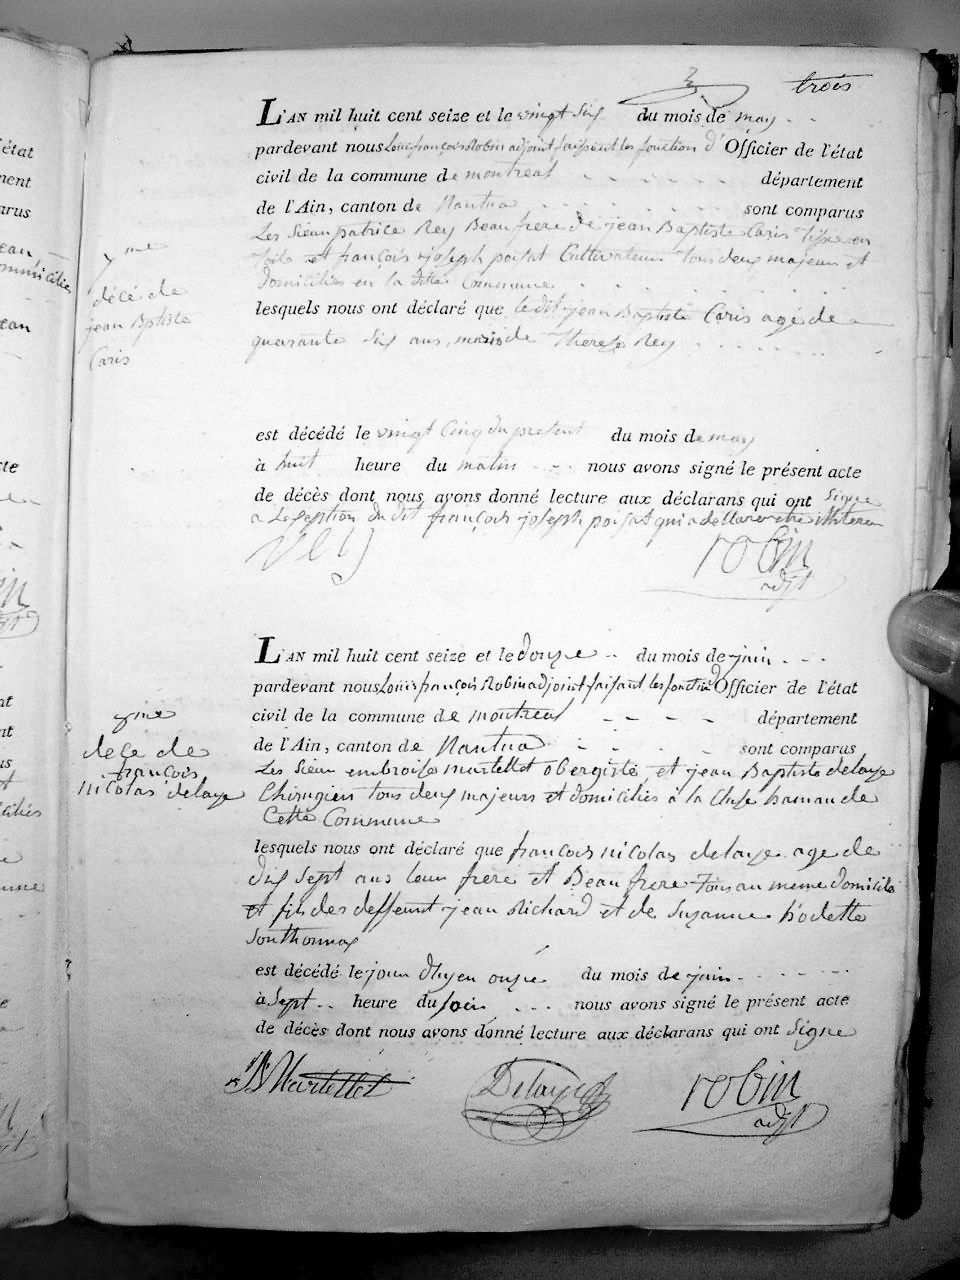 3 trois
L'AN mil huit cent seize et le vingt six du mois de may
pardevant nous Louis françois Robin adjoint faisant les fonction d'Officier de l'état
civil de la commune de montreal département
de l'Ain, canton de Nantua sont comparus
Les Sieur patrice Rey Beau frere de jean Baptiste Caris tisse en
toile et françois joseph poisat Cultivateur tous deux majeurs et
domiciliés en la ditte Commune
lesquels nous ont déclaré que ledit jean Baptiste Caris agé de
quarante six ans, mari de Therese Rey
7me
décé de
jean Bptiste
Caris
est décédé le vingt Cinq du present du mois de may
à huit heure du matin nous avons signé le présent acte
de décès dont nous avons donné lecture aux déclarans qui ont signe
a Lexseption du dit françois joseph poisat qui a dellarer etre
rey robin
adjt
L'AN mil huit cent seize et le douze du mois de juin
pardevant nous Louis françois Robin adjoint faisant les fonction d'Officier de l'état
civil de la commune de montreal département
de l'Ain, canton de Nantua sont comparus
Les Sieur embroise martellet obergiste et jean Baptiste delaye
Chirugien tous deux majeurs et domiciliés à la Cluse hamau de
Cette Commune
lesquels nous ont déclaré que françois nicolas delaye age de
dix sept ans leur frere et Beau frere au meme domicile
et fils des deffeunt jean Richard et de Suzanne
Southonnax
dece de
françois
nicolas delaye
est décédé le jour dhyer onze du mois de juin
à sept heure du soir nous avons signé le présent acte
de décès dont nous avons donné lecture aux déclarans qui ont signe
Martellet Delaye robin
adjt